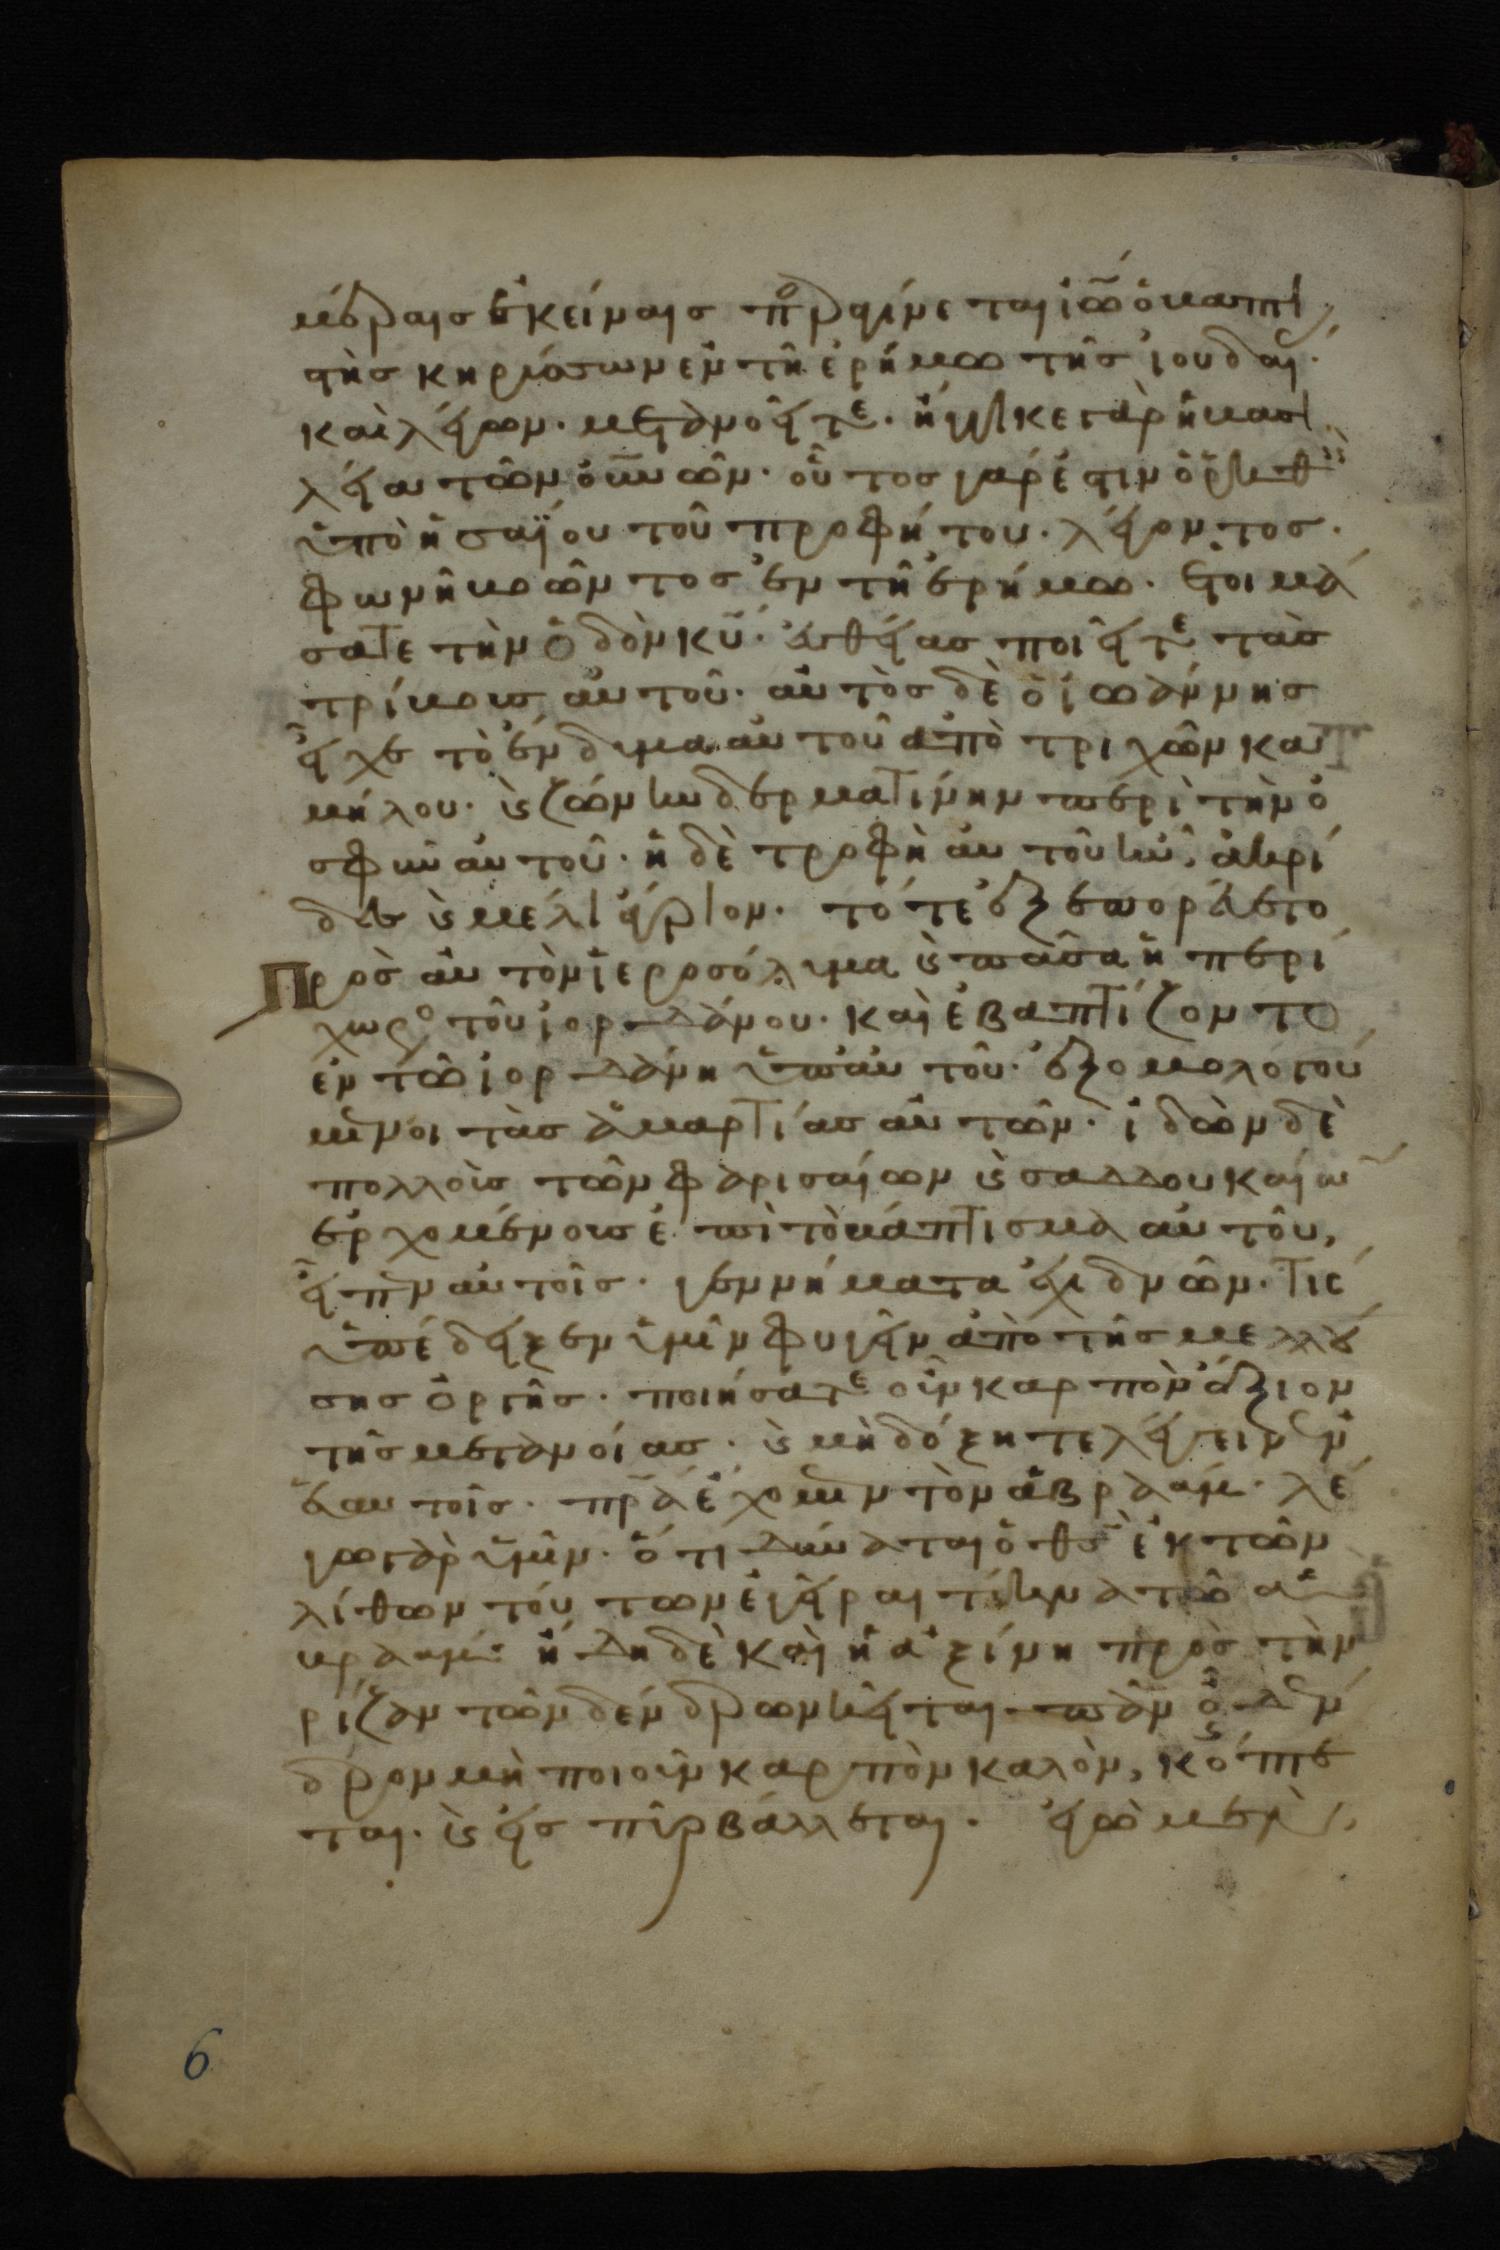 μέραις ἐκείναις παραγίνεται ἰω̅ ὁ βαπτι
στὴς κηρύσσων ἐν τῇ ἐρήμω τῆς ἰουδαί·
καὶ λέγων· μετανοεῖτε· ἤγγικε γὰρ ἡ βασι
λεία τῶν οὐ̅νῶν· οὗτος γάρ ἐστιν ὁ ῥηθεὶς
ὑπὸ ἠσαΐου τοῦ προφήτου· λέγοντος·
φωνὴ βοῶντος ἐν τῇ ἐρήμω· ἑτοιμά
σατε τὴν ὁδὸν κυ̅· εὐθείας ποιεῖτε τὰς
τρίβους αὐτοῦ· αὐτὸς δὲ ὁ ἰωάννης
εἶχε τὸ ἔνδυμα αὐτοῦ ἀπὸ τριχῶν κα
μήλου· ϗ ζώνην δερματίνην περὶ τὴν ὀ
σφὺν αὐτοῦ· ἡ δὲ τροφὴ αὐτοῦ ἦν, ἀκρί
δες ϗ μέλι ἄγριον· τότε ἐξεπορεύετο
Πρὸς αὐτὸν ἱεροσόλυμα ϗ πᾶσα ἡ περί
χωρο τοῦ ἰορδάνου· καὶ ἐβαπτίζοντο
ἐν τῶ ἰορδάνη ὑπ' αὐτοῦ· ἐξομολογού
μενοι τὰς ἁμαρτίας αὐτῶν· ἰδὼν δὲ
πολλοὺς τῶν φαρισαίων ϗ σαδδουκαίω̅
ἐρχομένους ἐπὶ τὸ βάπτισμα αὐτοῦ,
εἶπεν αὐτοῖς· γεννήματα ἐχιδνῶν· τίς
ὑπέδειξεν ὑμῖν φυγεῖν ἀπὸ τῆς μελλού
σης ὀργῆς· ποιήσατε οὖν καρπὸν ἄξιον
τῆς μετανοίας· ϗ μὴ δόξητε λέγειν ἐν
ἑαυτοῖς· πρ̅α ἔχομεν τὸν ἀβραάμ· λέ
γω γὰρ ὑμῖν· ὅτι δύναται ὁ θς̅ ἐκ τῶν
λίθων τούτων ἐγεῖραι τέκνα τῶ ἀ
βραάμ· ἤδη δὲ καὶ ἡ ἀξίνη πρὸς τὴν
ρίζαν τῶν δένδρων κεῖται· πᾶν οὖν δέν
δρον μὴ ποιοῦν καρπὸν καλὸν, ἐκκόπτε
ται· ϗ εἰς πῦρ βάλλεται· ἐγὼ μὲν
6